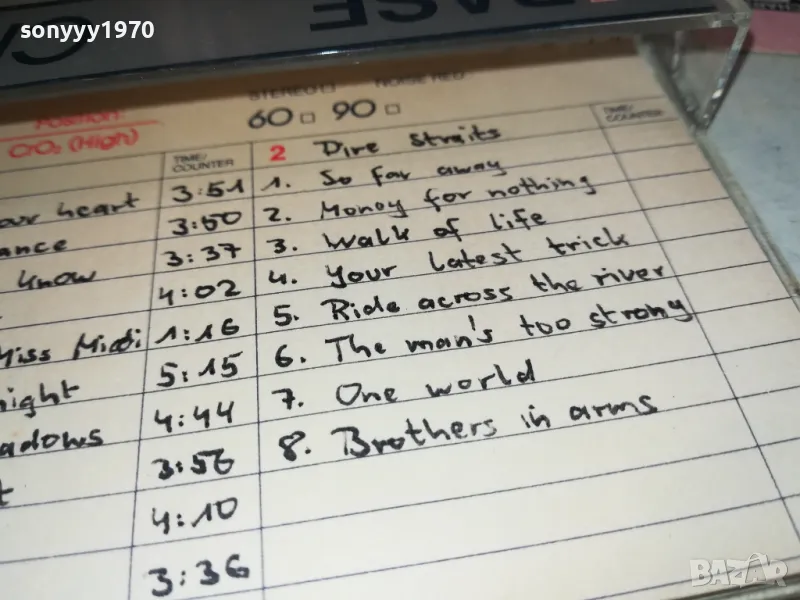 sonyyy1970
BASF
STEREO NOISE RED
POSITION:
CrO₂ (High)
60 90
TIME/
COUNTER
2 Dire Straits
TIME/
COUNTER
heart 3:51 1. So far away
ance 3:50 2. Money for nothing
know 3:37 3. Walk of life
4:02 4. Your latest trick
Miss Midi 1:16 5. Ride across the river
night 5:15 6. The man's too strong
adows 4:44 7. One world
t 3:56 8. Brothers in arms
4:10
3:36
bazar.bg